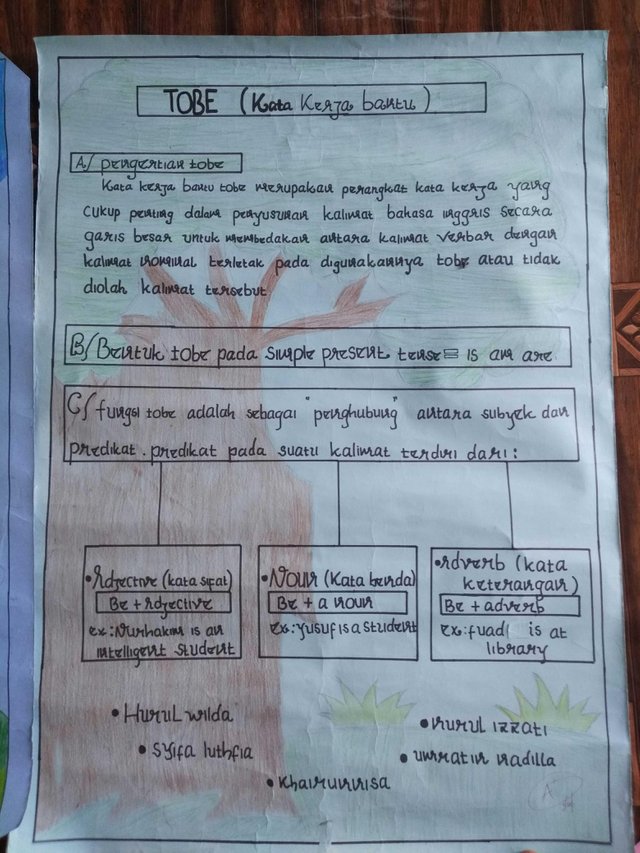 TOBE (Kata Kerja bantu)
A/ pengertian tobe
Kata kerja bantu tobe merupakan perangkat kata kerja yang
cukup penting dalam penyusunan kalimat bahasa inggris secara
garis besar untuk membedakan antara kalimat verbar dengan
kalimat nominal terletak pada digunakannya tobe atau tidak
diolah kalimat tersebut
B/ Bentuk tobe pada simple present tense = is am are
C/ fungsi tobe adalah sebagai "penghubung" antara subyek dan
predikat. predikat pada suatu kalimat terdiri dari:
• Adjective (kata sifat)
Be + Adjective
ex: Nurhakim is an
intelligent student
• Noun (Kata benda)
Be + a noun
ex: Yusuf is a student
• Adverb (kata
keterangan)
Be + adverb
ex: fuadi is at
library
• Hurul wilda
• Syifa luthfia
• Khairunnisa
• nurul izzati
• ummatin nadilla